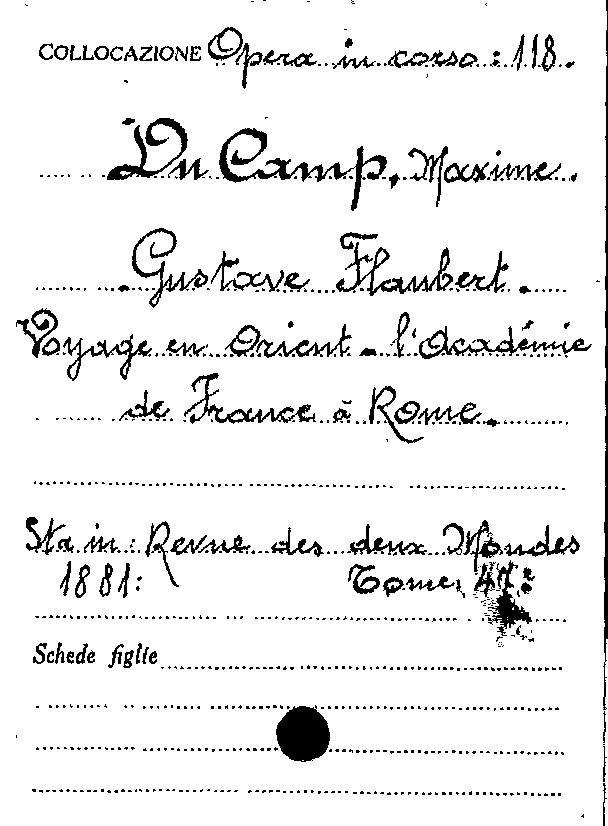 COLLOCAZIONE Opera in corso: 118.
Du Camp, Maxime.
Gustave Flaubert.
Voyage en Orient - l'Académie
de France à Rome.
Sta in: Revue des deux Mondes
1881: Tome 47:
Schede figlie